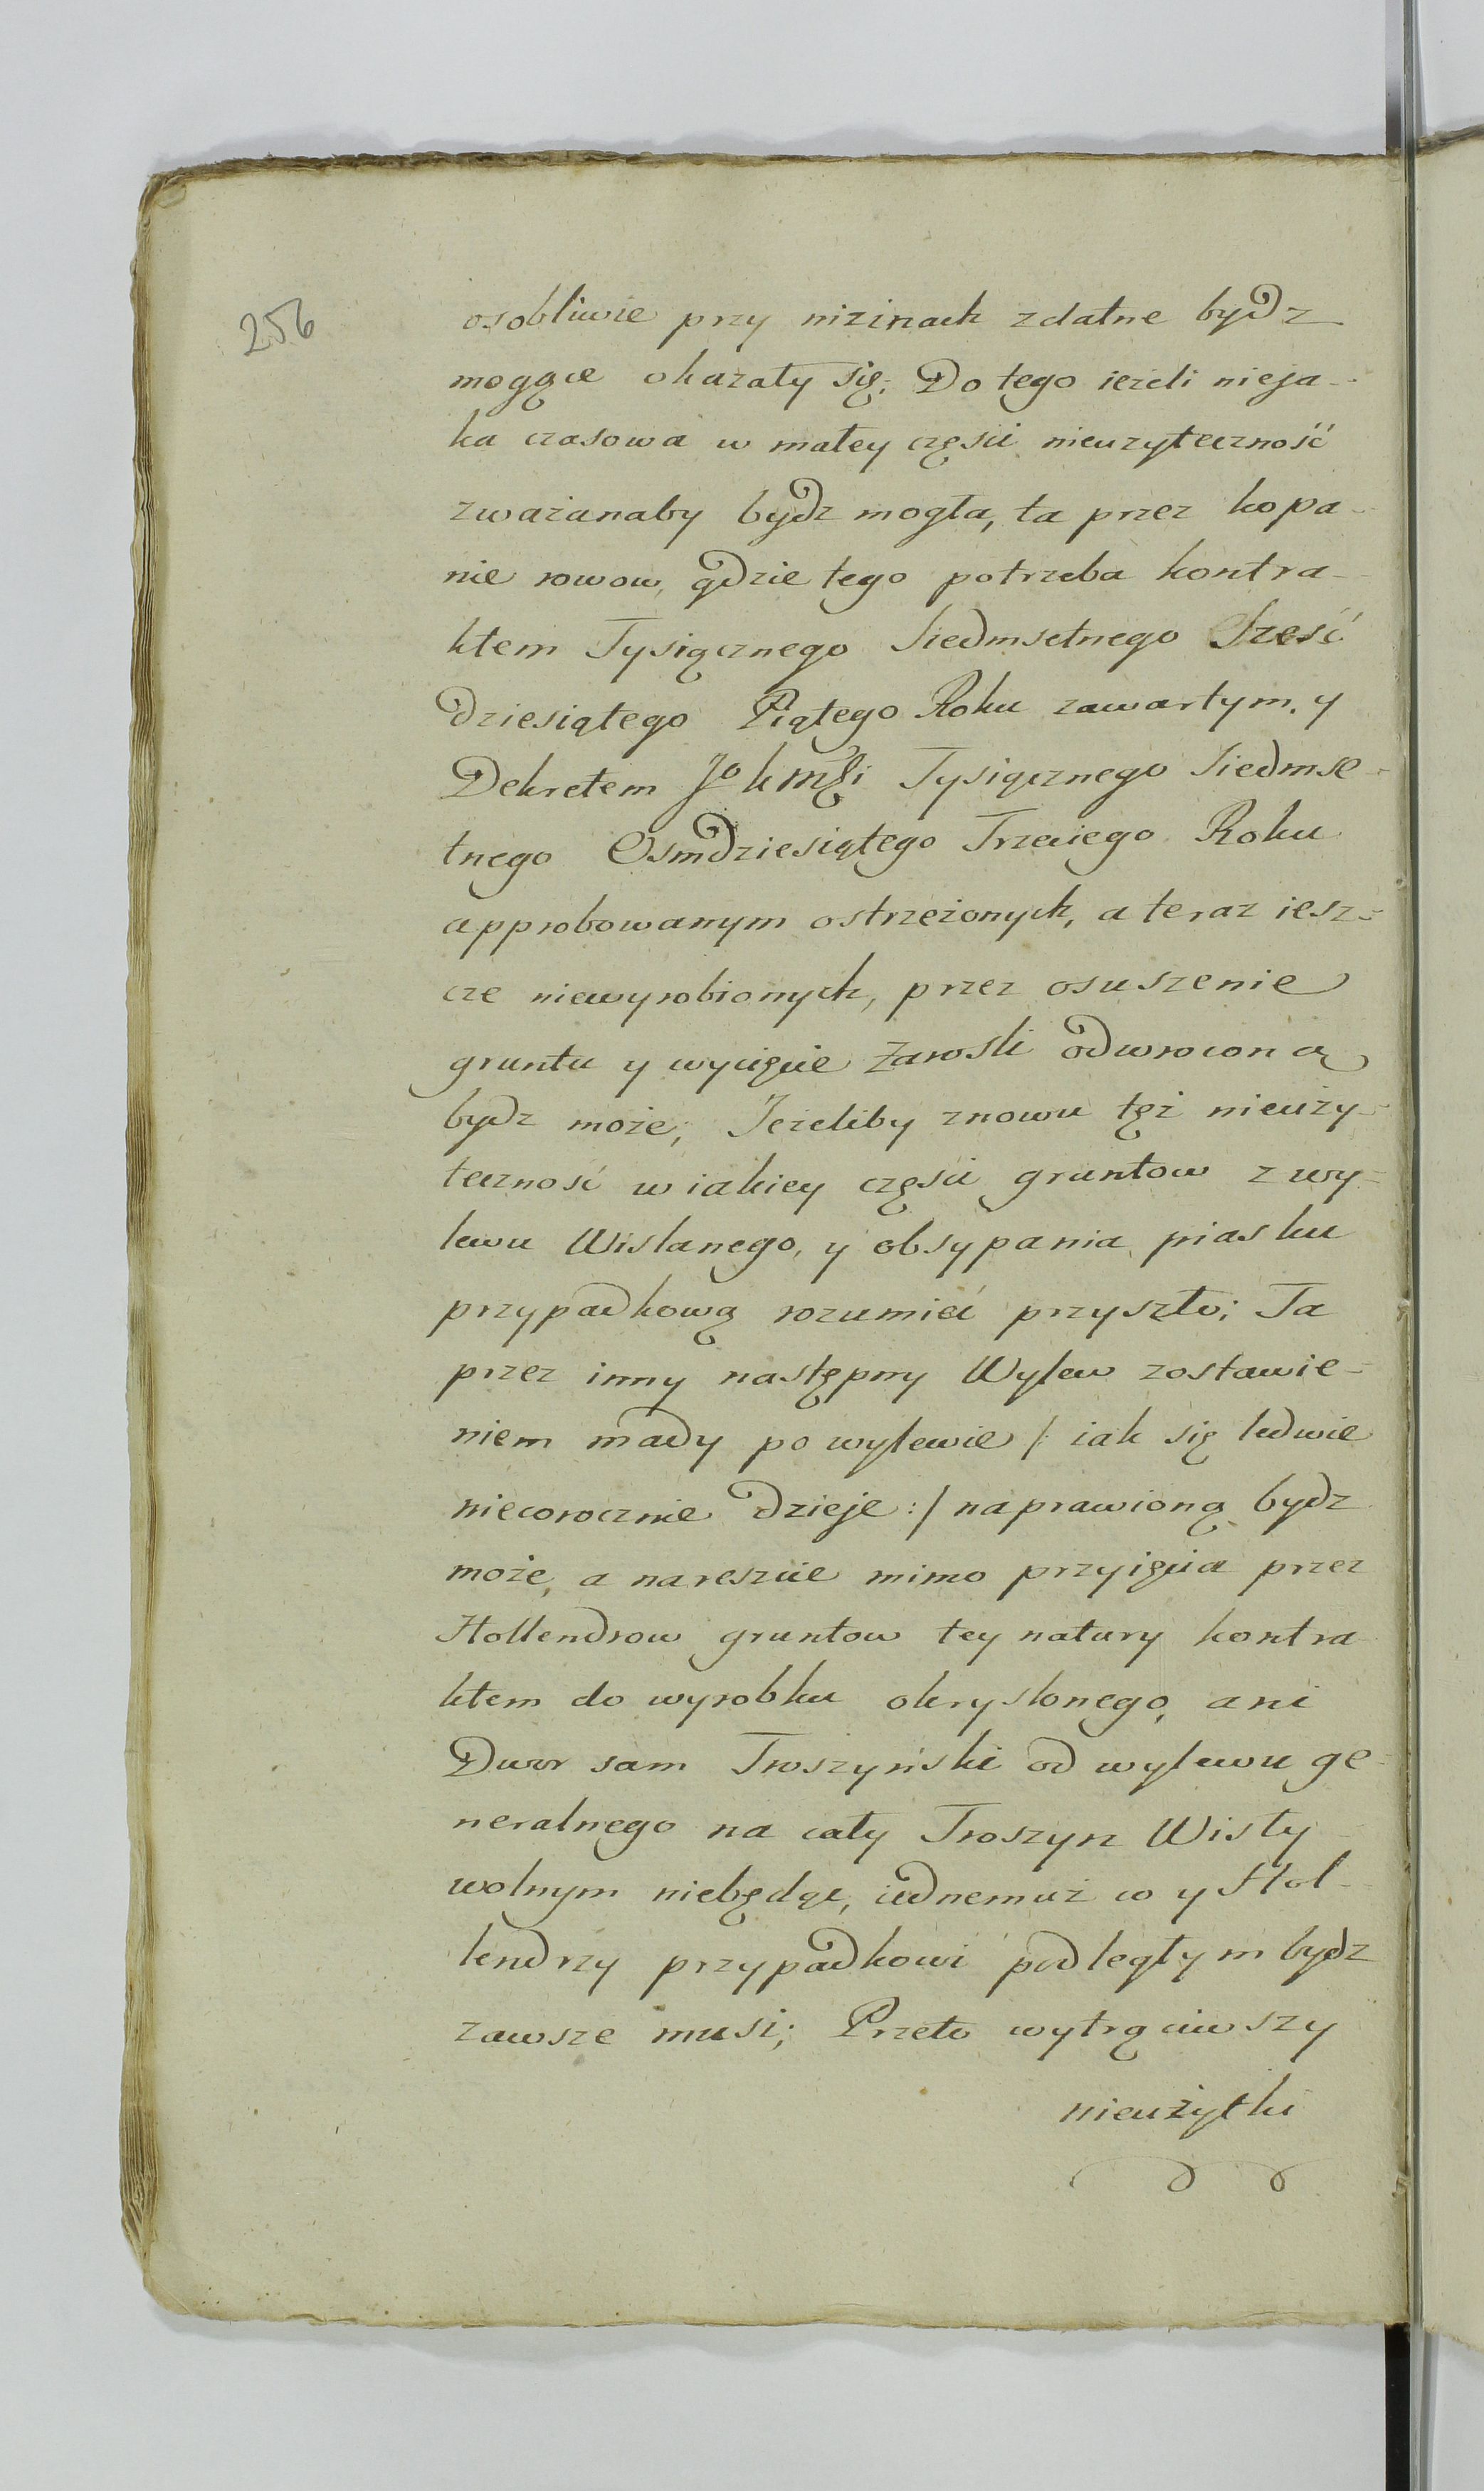 256
osobliwie przy nizinach zdatne bydz
mogące okazały się; Do tego ieżeli nieja-
ka czasowa w małey części nieuzyteczność
zważanaby bydz mogła, ta przez kopa-
nie rowow, gdzie tego potrzeba kontra-
ktem Tysiącznego Siedmsetnego Sześć
dziesiątego Piątego Roku zawartym, y
Dekretem JoKmŚci Tysiącznego Siedmse-
tnego Osmdziesiątego Trzeciego Roku
approbowanym ostrzeżonych, a teraz iesz-
cze niewyrobionych, przez osuszenie
gruntu y wycięcie Zarosli odwroconą
bydz może; Jeżeliby znowu tęż nieuży-
teczność w iakiey części gruntow z wy-
lewu Wislanego, y obsypania piasku
przypadkową rozumieć przyszło; Ta
przez inny następny Wylew zostawie-
niem mady po wylewie /: iak się ledwie
niecorocznie dzieje :/ naprawioną bydz
może, a nareszcie mimo przyięcia przez
Hollendrow gruntow tey natury kontra-
ktem do wyrobku okryslonego, ani
Dwor sam Troszyński od wylewu ge-
neralnego na cały Troszyn Wisły
wolnym niebędąc, iednemuż co y Hol-
lendrzy przypadkowi podległym bydz
zawsze musi; Przeto wytrąciwszy
nieużytki